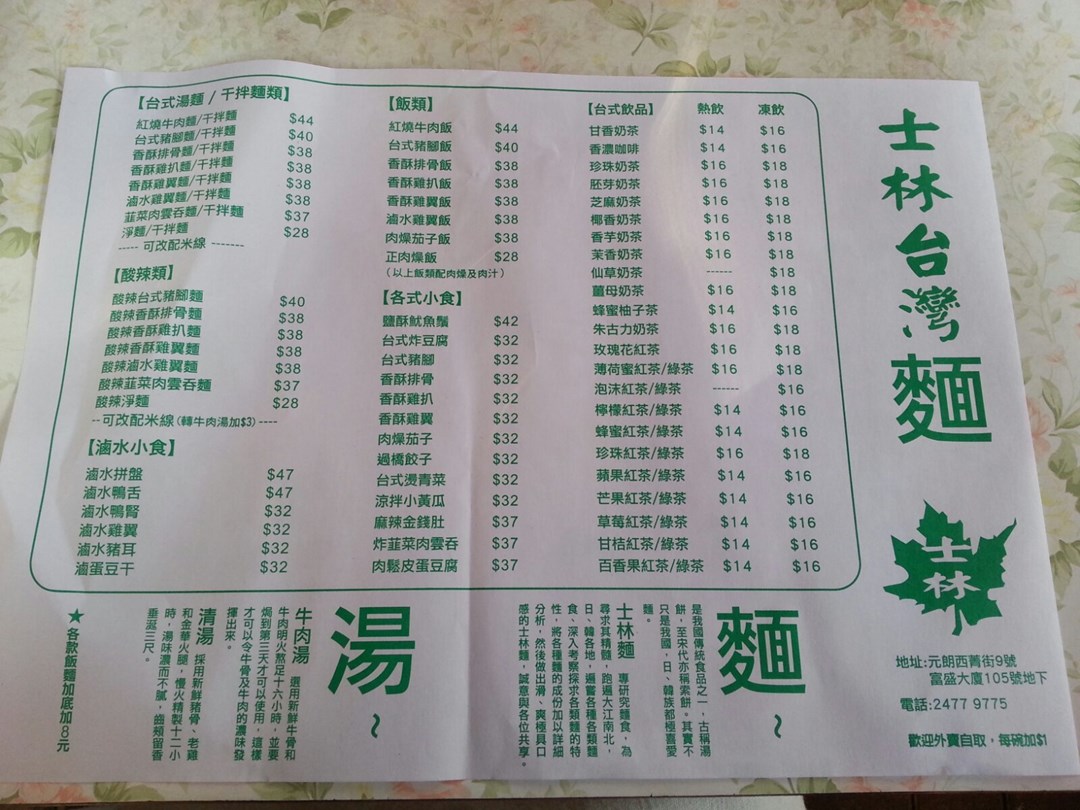 【台式湯麵 / 干拌麵類】
紅燒牛肉麵/干拌麵 $44
台式豬腳麵/干拌麵 $40
香酥排骨麵/干拌麵 $38
香酥雞扒麵/干拌麵 $38
香酥雞翼麵/干拌麵 $38
滷水雞翼麵/干拌麵 $38
韮菜肉雲吞麵/干拌麵 $37
淨麵/干拌麵 $28
----- 可改配米線 -------
【酸辣類】
酸辣台式豬腳麵 $40
酸辣香酥排骨麵 $38
酸辣香酥雞扒麵 $38
酸辣香酥雞翼麵 $38
酸辣滷水雞翼麵 $38
酸辣韮菜肉雲吞麵 $37
酸辣淨麵 $28
--可改配米線(轉牛肉湯加$3)----
【滷水小食】
滷水拼盤 $47
滷水鴨舌 $47
滷水鴨腎 $32
滷水雞翼 $32
滷水豬耳 $32
滷蛋豆干 $32
【飯類】
紅燒牛肉飯 $44
台式豬腳飯 $40
香酥排骨飯 $38
香酥雞扒飯 $38
香酥雞翼飯 $38
滷水雞翼飯 $38
肉燥茄子飯 $38
正肉燥飯 $28
(以上飯類配肉燥及肉汁)
【各式小食】
鹽酥魷魚鬚 $42
台式炸豆腐 $32
台式豬腳 $32
香酥排骨 $32
香酥雞扒 $32
香酥雞翼 $32
肉燥茄子 $32
過橋餃子 $32
台式燙青菜 $32
涼拌小黃瓜 $32
麻辣金錢肚 $37
炸韮菜肉雲吞 $37
肉鬆皮蛋豆腐 $37
【台式飲品】 熱飲 凍飲
甘香奶茶 $14 $16
香濃咖啡 $14 $16
珍珠奶茶 $16 $18
胚芽奶茶 $16 $18
芝麻奶茶 $16 $18
椰香奶茶 $16 $18
香芋奶茶 $16 $18
茉香奶茶 $16 $18
仙草奶茶 ------ $18
薑母奶茶 $16 $18
蜂蜜柚子茶 $14 $16
朱古力奶茶 $16 $18
玫瑰花紅茶 $16 $18
薄荷蜜紅茶/綠茶 $16 $18
泡沫紅茶/綠茶 ------ $16
檸檬紅茶/綠茶 $14 $16
蜂蜜紅茶/綠茶 $14 $16
珍珠紅茶/綠茶 $16 $18
蘋果紅茶/綠茶 $14 $16
芒果紅茶/綠茶 $14 $16
草莓紅茶/綠茶 $14 $16
甘桔紅茶/綠茶 $14 $16
百香果紅茶/綠茶 $14 $16
士林台灣麵
士林
地址:元朗西菁街9號
富盛大廈105號地下
電話:2477 9775
歡迎外賣自取，每碗加$1
麵~
是我國傳統食品之一，古稱湯
餅，至宋代亦稱索餅。其實不
只是我國，日、韓族都極喜愛
麵。
士林麵 專研究麵食，為
尋求其精髓，跑遍大江南北，
日、韓各地，遍嘗各種各類麵
食、深入考察探求各類麵的特
性，將各種麵的成份加以詳細
分析，然後做出滑、爽極具口
感的士林麵，誠意與各位共享。
湯~
牛肉湯 選用新鮮牛骨和
牛肉明火熬足十六小時，並要
焗到第三天才可以使用，這樣
才可以令牛骨及牛肉的濃味發
揮出來。
清湯 採用新鮮豬骨、老雞
和金華火腿，慢火精製十二小
時，湯味濃而不膩，齒頰留香
垂涎三尺。
★各款飯麵加底加8元